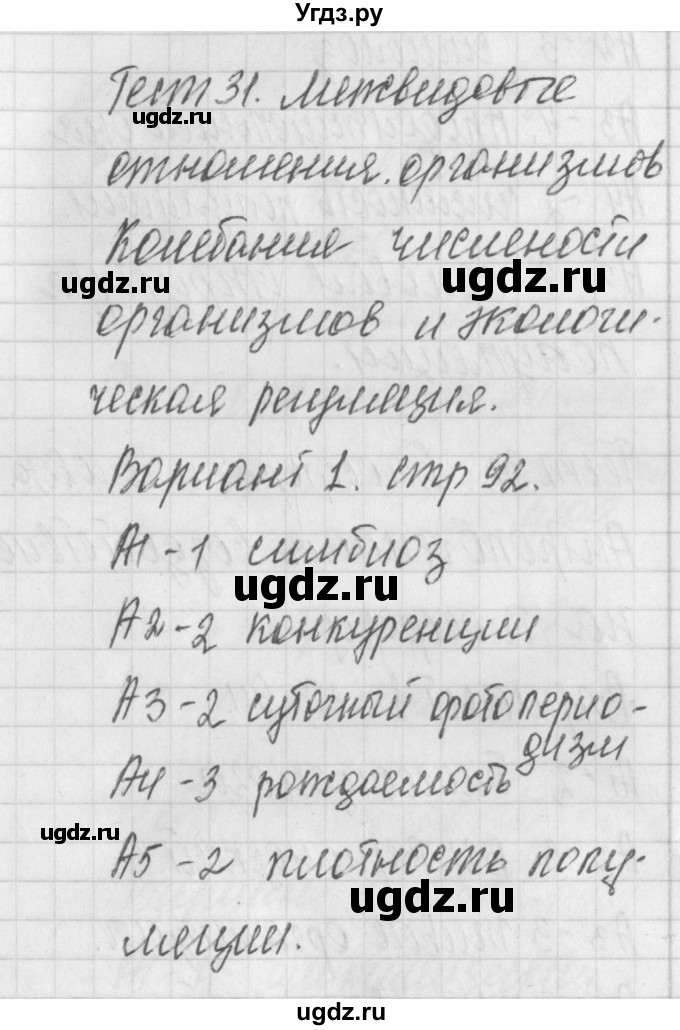 Угдз.ру
Тест 31. Межвидовые
ugdz.ru
отношения. организмов
Колебания числености
ugdz.ru ugdz.ru
организмов и экологи-
ческая регуляция.
Вариант 1. стр 92.
А1-1 симбиоз
ugdz.ru
А2-2 конкуренции
А3-2 суточный фотоперио-
дизм
А4-3 рождаемость
ugdz.ru
А5-2 плотность попу-
ugdz.ru
ляции.
ugdz.ru